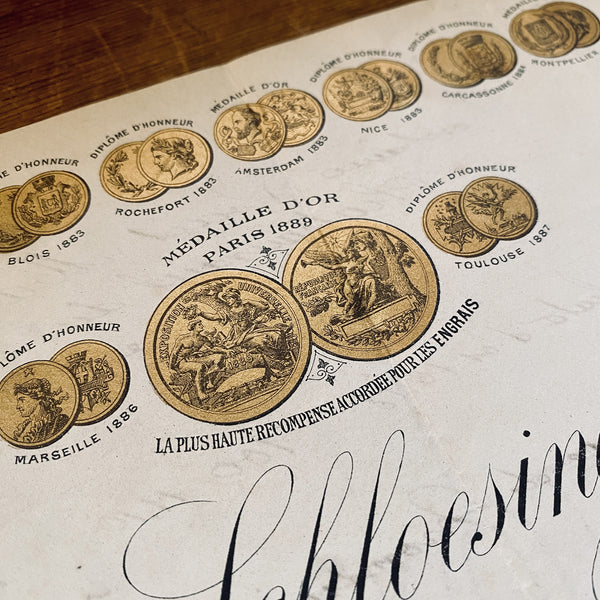 DIPLÔME D'HONNEUR
BLOIS 1883
DIPLÔME D'HONNEUR
ROCHEFORT 1883
MÉDAILLE D'OR
AMSTERDAM 1883
DIPLÔME D'HONNEUR
NICE 1883
DIPLÔME D'HONNEUR
CARCASSONNE
MÉDAILLE
MONTPELLIER
MÉDAILLE D'OR
PARIS 1889
EXPOSITION UNIVERSELLE
1889
RÉPUBLIQUE FRANÇAISE
LA PLUS HAUTE RECOMPENSE ACCORDÉE POUR LES ENGRAIS
DIPLÔME D'HONNEUR
TOULOUSE 1887
LÔME D'HONNEUR
MARSEILLE 1886
Schloesing